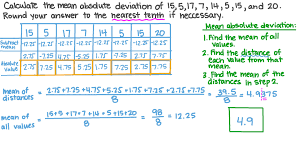 Calculate the mean absolute deviation of 15, 5, 17, 7, 14, 5, 15, and 20.
Round your answer to the nearest tenth if neccessary.
Mean absolute deviation:
1. Find the mean of all
values.
2. Find the distance of
each value from that
mean.
3. Find the mean of the
distances in step 2.
15 5 17 7 14 5 15 20
Subtract mean -12.25 -12.25 -12.25 -12.25 -12.25 -12.25 -12.25 -12.25
2.75 -7.25 4.75 -5.25 1.75 -7.25 2.75 7.75
Absolute value 2.75 7.25 4.75 5.25 1.75 7.25 2.75 7.75
mean of distances =
= 39.5/8 = 4.9375
mean of all values = 15+5+17+7+14+5+15+20/8 = 98/8 = 12.25
4.9